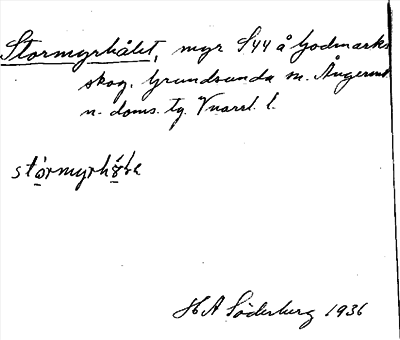 Stormyrhålet, myr S44 å Godmarks
skog. Grundsunda sn. Ångerml.
n. doms. tg. Vnorrl. l.
stórmyrhó̤le
H A Söderberg 1936